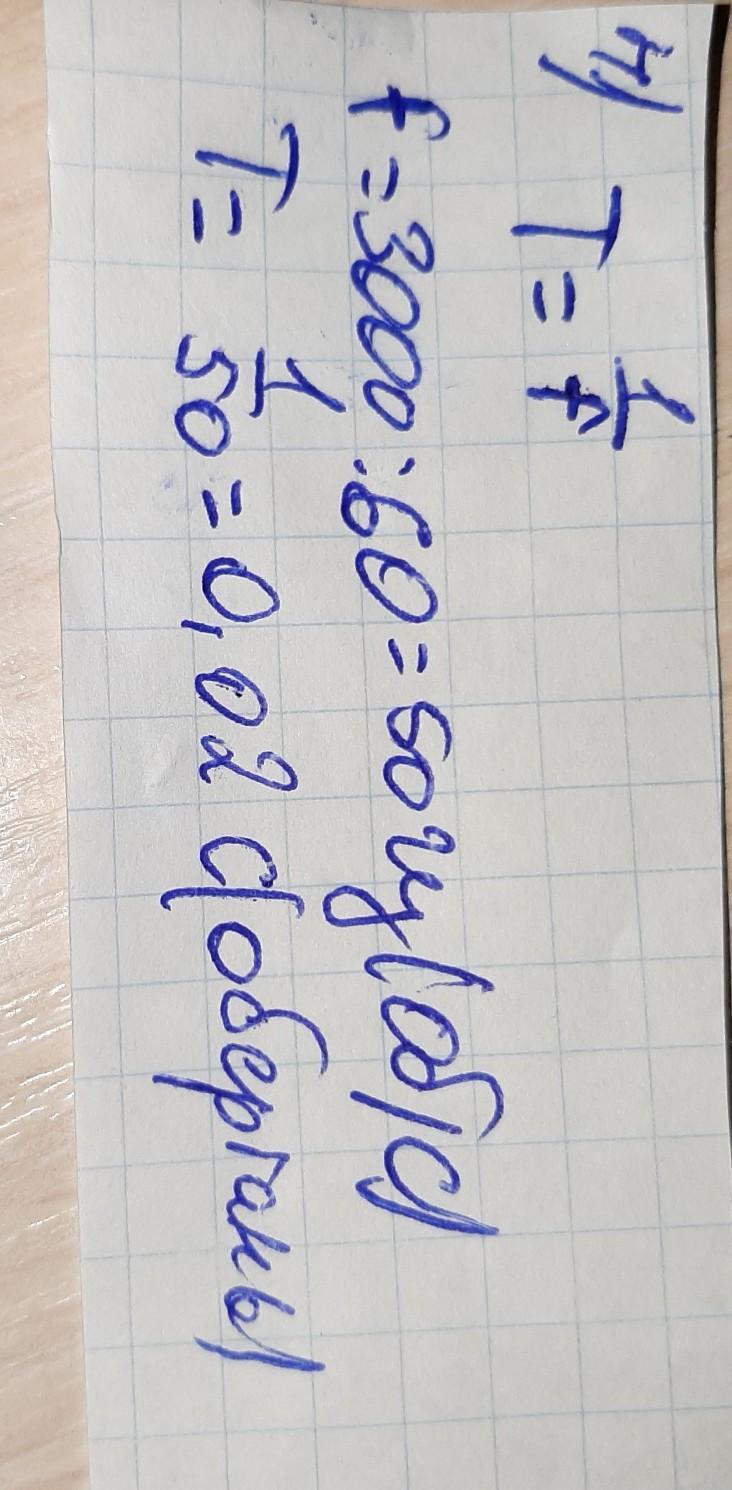 4)
T = 1/f
f = 3000 : 60 = 50 гц (об/с)
T = 1/50 = 0,02 с (обертаны)